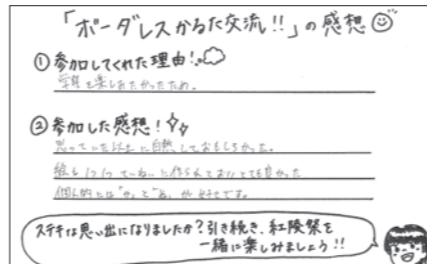 「ボーダレスかるた交流!!」の感想
①参加してくれた理由!
学祭を楽しみたかったため。
②参加した感想!
思っていた以上に白熱しておもしろかった。
絵も1つ1つていねいに作られておりとても良かった
個人的には「か」と「ぬ」が好きです。
ステキな思い出になりましたか?引き続き、紅陵祭を
一緒に楽しみましょう!!